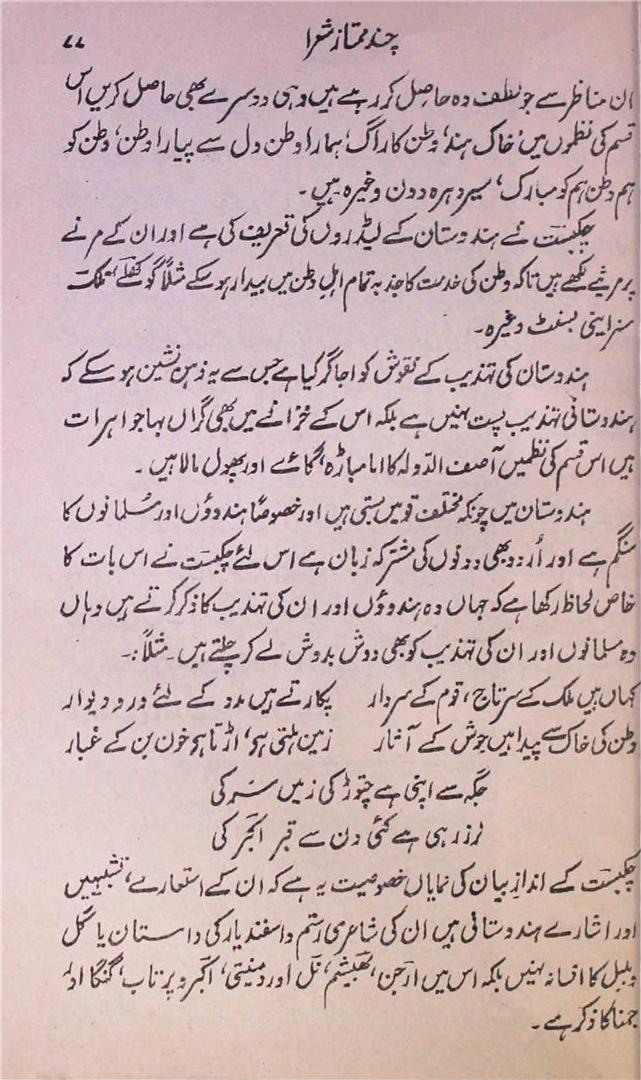 چند ممتاز شعرا ۷۷
ان مناظر سے جو لطف وہ حاصل کر رہے ہیں وہی دوسرے بھی حاصل کریں اس
قسم کی نظموں میں ’خاک ہند‘، وطن کا راگ‘، ہمارا وطن دل سے پیارا وطن‘، وطن کو
ہم وطن ہم کو مبارک‘ سیر دہرہ دون وغیرہ ہیں۔
چکبست نے ہندوستان کے لیڈروں کی تعریف کی ہے اور ان کے مرنے
پر مرثیے لکھے ہیں تاکہ وطن کی خدمت کا جذبہ تمام اہل وطن میں بیدار ہو سکے مثلاً گوکھلے، تلک
مسز اینی بسنٹ وغیرہ۔
ہندوستان کی تہذیب کے نقوش کو اجاگر کیا ہے جس سے یہ ذہن نشین ہو سکے کہ
ہندوستانی تہذیب پست نہیں ہے بلکہ اس کے خزانے میں بھی گراں بہا جواہرات
ہیں اس قسم کی نظمیں آصف الدولہ کا امامباڑہ، گائے اور پھول مالا ہیں۔
ہندوستان میں چونکہ مختلف قومیں بستی ہیں اور خصوصاً ہندوؤں اور مسلمانوں کا
سنگم ہے اور اُردو بھی دونوں کی مشترکہ زبان ہے اس لئے چکبست نے اس بات کا
خاص لحاظ رکھا ہے کہ جہاں وہ ہندوؤں اور ان کی تہذیب کا ذکر کرتے ہیں وہاں
وہ مسلمانوں اور ان کی تہذیب کو بھی دوش بدوش لے کر چلتے ہیں۔ مثلاً:۔
کہاں ہیں ملک کے سرتاج، قوم کے سردار پکارتے ہیں مدد کے لئے در و دیوار
وطن کی خاک سے پیدا ہیں جوش کے آثار زمین ہلتی ہو، اڑتا ہو خون بن کے غبار
جگہ سے اپنی ہے چتوڑ کی زمیں سرکی
لرز رہی ہے کئی دن سے قبر اکبر کی
چکبست کے انداز بیان کی نمایاں خصوصیت یہ ہے کہ ان کے استعارے، تشبیہیں
اور اشارے ہندوستانی ہیں ان کی شاعری رستم و اسفندیار کی داستان یا گل
و بلبل کا افسانہ نہیں بلکہ اس میں ارجن، بھیشم، نل اور دمنیتی، اکبر و پرتاب، گنگا اور
جمنا کا ذکر ہے۔